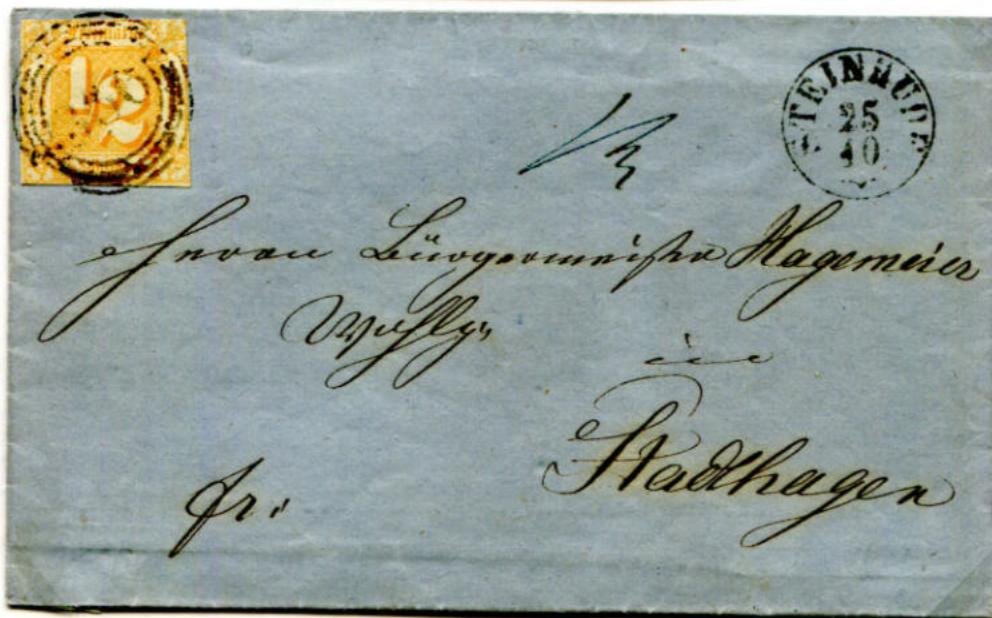 1/2
STEINHUDE
25
10
1/2
Herrn Bürgermeister Hagemeier
Wohlg.
in
Stadthagen
fr.